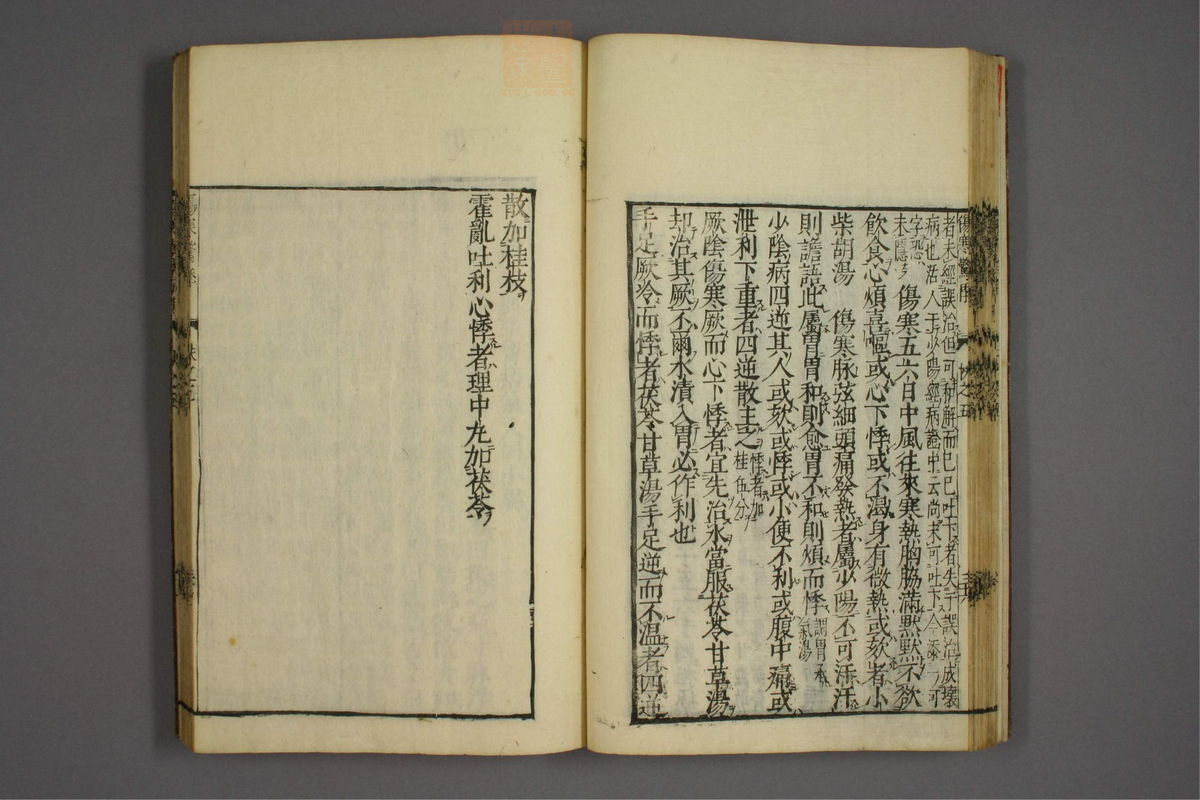 者未經誤治但可和解而已已吐下者失于誤治成壞
病也活人于少陽經病證中云尚未可吐下今添一可
字恐
未隱 傷寒五六日中風往來寒熱胸脇滿黙黙不欲
飲食心煩喜嘔或心下悸或不渴身有微熱或欬者小
柴胡湯 傷寒脉弦細頭痛發熱者屬少陽不可汗汗
則譫語此屬胃胃和則愈胃不和則煩而悸 謂胃承氣湯
少陰病四逆其人或欬或悸或小便不利或腹中痛或
泄利下重者四逆散主之 悸者加桂伍分
厥陰傷寒厥而心下悸者宜先治水當服茯苓甘草湯
却治其厥不爾水漬入胃必作利也
手足厥冷而悸者茯苓甘草湯手足逆而不温者四逆
散加桂枝
霍亂吐利心悸者理中丸加茯苓